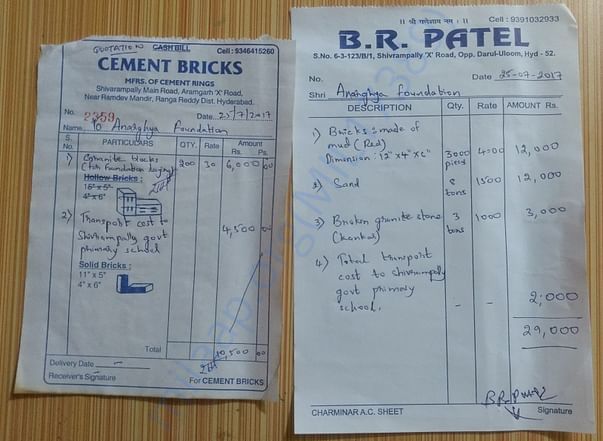 QUOTATION CASH BILL Cell : 9346415260
CEMENT BRICKS
MFRS. OF CEMENT RINGS
Shivarampally Main Road, Aramgarh 'X' Road,
Near Ramdev Mandir, Ranga Reddy Dist. Hyderabad.
No. 2359 Date 25/7/2017
Name To Ananghya Foundation
S. No. PARTICULARS QTY. RATE Amount Rs. Ps.
1) Granite blocks 200 30 6,000 00
(for Foundation laying)
Hollow Bricks :
15" x 5"
4" x 6"
2) Transport cost to 4,500 00
Shivrampally govt
primary school
Solid Bricks :
11" x 5"
4" x 6"
Total 10,500 00
Delivery Date
Receiver's Signature For CEMENT BRICKS
|| श्री गणेशाय नमः || Cell : 9391032933
B.R. PATEL
S.No. 6-3-123/B/1, Shivrampally 'X' Road, Opp. Darul-Uloom, Hyd - 52.
No. Date 25-07-2017
Shri Ananghya Foundation
DESCRIPTION Qty. Rate AMOUNT Rs.
1) Bricks : made of
mud (Red) 3000 4000 12,000
Dimension : 12" x 4" x 6" pieces
2) Sand 8 tons 1500 12,000
3) Broken granite stone 3 tons 1000 3,000
(Kankar)
4) Total transport
cost to shivrampally
govt primary
school. - - 2,000
29,000
B.R. Patel
CHARMINAR A.C. SHEET Signature